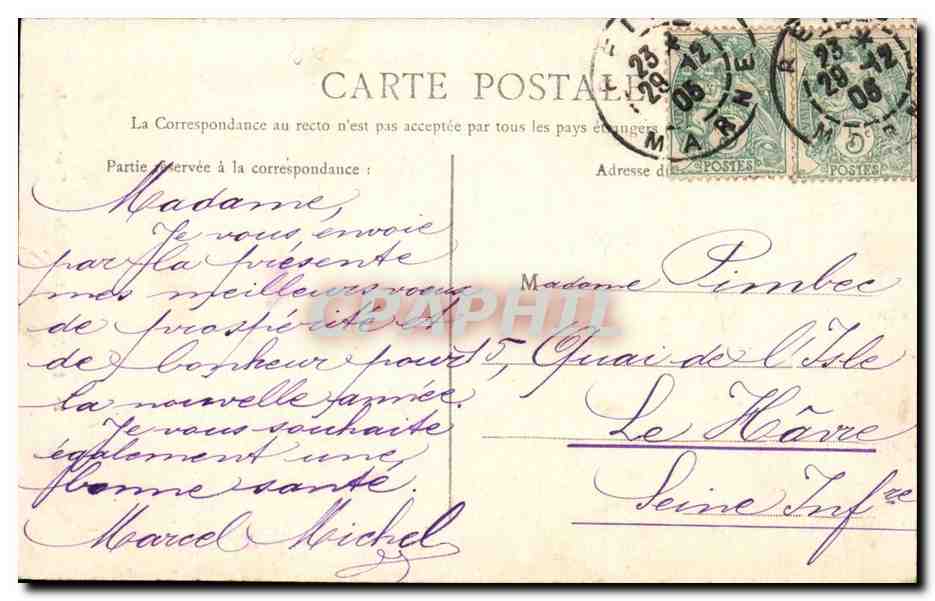 CARTE POSTALE
La Correspondance au recto n'est pas acceptée par tous les pays étrangers
Partie réservée à la correspondance :
Adresse du
23
29-12
05
MARNE
23
29-12
05
5c
POSTES
POSTES
Madame,
Je vous envoie
par la présente
mes meilleurs voeux
de prospérité et
de bonheur pour
la nouvelle année.
Je vous souhaite
également une
bonne santé.
Marcel Michel
Madame Pimbec
5, Quai de l'Isle
Le Hâvre
Seine Infre
CPAPHIL